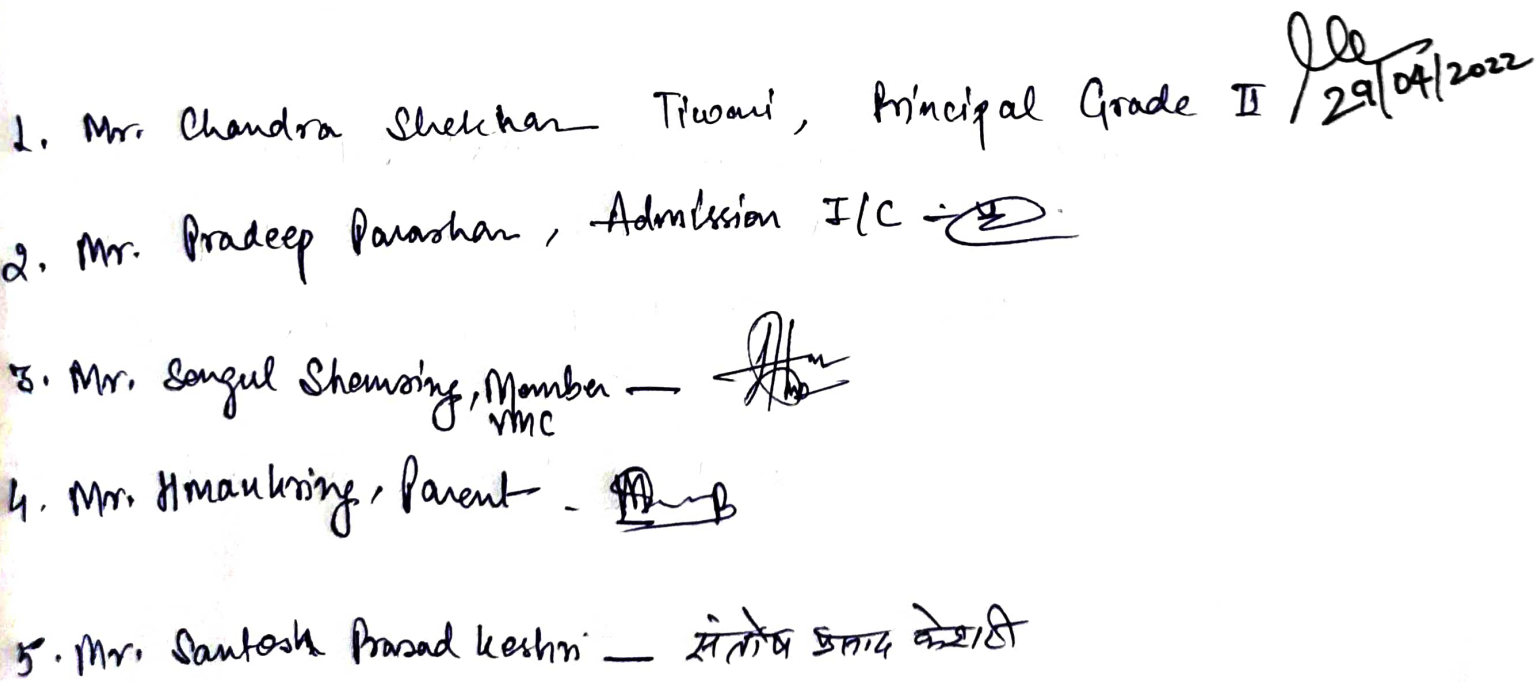 1. Mr. Chandra Shekhar Tiwari, Principal Grade II 29/04/2022
2. Mr. Pradeep Parashar, Admission I/C -
3. Mr. Songul Shemsing, Member —
VMC
4. Mr. Hmanhring, Parent -
5. Mr. Santosh Prasad Keshri — संतोष प्रसाद केशरी